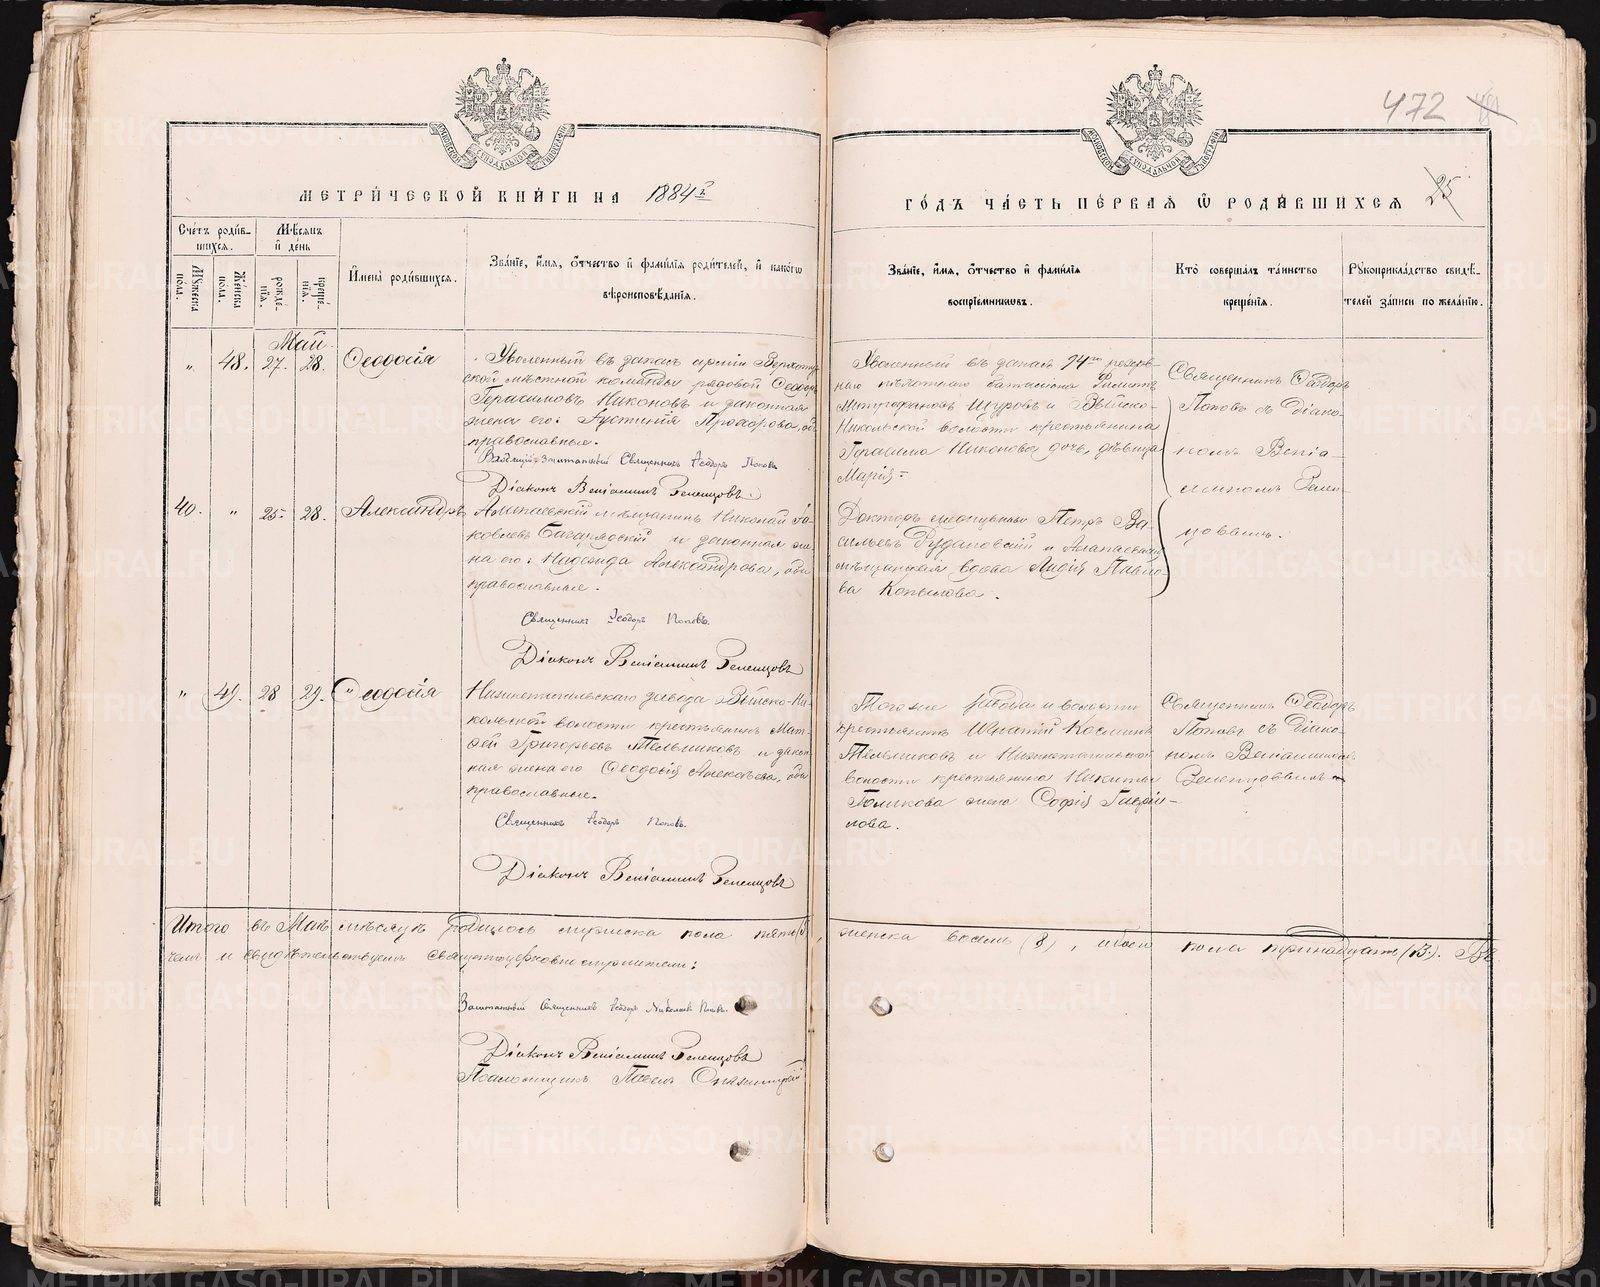 472
25
МОСКОВСКОЙ СѴНОДАЛЬНОЙ ТИПОГРАФІИ
МОСКОВСКОЙ СѴНОДАЛЬНОЙ ТИПОГРАФІИ
МЕТРИ́ЧЕСКОЙ КНИ́ГИ НА 1884 г
ГО́ДЪ ЧА́СТЬ ПЕ́РВАЯ Ѿ РОДИ́ВШИХСЯ
Сче́тъ роди́в-
шихся.
Мѣ́сяцъ
и́ де́нь
Му́жеска
пола.
Же́нска
пола.
рожде́-
нїя.
креще́-
нїя.
И҆мена̀ роди́вшихся.
Зва́нїе, и҆́мя, о҆́тчество и҆ фами́лїя роди́телей, и҆ како́гѡ
вѣроисповѣ́данїя.
Зва́нїе, и҆́мя, о҆́тчество и҆ фами́лїя
воспрїе́мниковъ.
Кто̀ соверша́лъ та́инство
креще́нїя.
Рꙋкоприкла́дство свидѣ́-
телей за́писи по жела́нїю.
Май
„ 48. 27. 28. Ѳеодосія
Уволенный въ запасъ арміи Верхотур-
ской мѣстной команды рядовой Ѳеодоръ
Герасимовъ Никоновъ и законная
жена его: Іустинія Прохорова, оба
православные.
Заштатный Священникъ Ѳеодоръ Поповъ
Діаконъ Веніаминъ Зеленцовъ.
Уволенный въ запасъ 94го резерв-
наго пѣхотнаго баталіона Филиппъ
Митрофановъ Щуровъ и Выйско-
Никольской волости крестьянина
Герасима Никонова дочь, дѣвица
Марія.
Священникъ Ѳеодоръ
Поповъ съ Діако-
номъ Веніа-
миномъ Зелен-
цовымъ.
40. „ 25. 28. Александръ
Алапаевскій мѣщанинъ Николай Іа-
ковлевъ и законная же-
на его: Надежда Александрова, оба
православные.
Священникъ Ѳеодоръ Поповъ.
Діаконъ Веніаминъ Зеленцовъ
Докторъ медицины Петръ Ва-
сильевъ Рудановскій и Алапаевская
мѣщанская вдова Лидія Павло-
ва Копылова.
„ 49. 28 29. Ѳеодосія
Нижнетагильскаго завода Выйско-Ни-
кольской волости крестьянинъ Мат-
ѳей Григорьевъ Мельниковъ и закон-
ная жена его Ѳеодосія Алексѣева, оба
православные.
Священникъ Ѳеодоръ Поповъ.
Діаконъ Веніаминъ Зеленцовъ
Того же завода и волости
крестьянинъ Игнатій Косминъ
Мельниковъ и Нижнетагильской
волости крестьянина Никиты
Голикова жена Софія Гаврі-
лова.
Священникъ Ѳеодоръ
Поповъ съ Діако-
номъ Веніаминомъ
Зеленцовымъ
Итого въ Маѣ мѣсяцѣ родилось мужеска пола пять (5), женска восемь (8), обоего пола тринадцать (13). Въ
чемъ и свидѣтельствуемъ священноцерковнослужители:
Заштатный Священникъ Ѳеодоръ Николаевъ Поповъ.
Діаконъ Веніаминъ Зеленцовъ
Псаломщикъ Павелъ